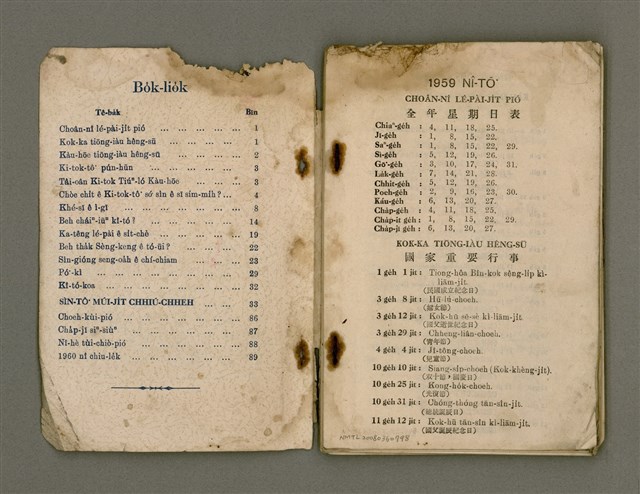 Bo̍k-lio̍k
Tê-ba̍k Bīn
Choân-nî lé-pài-ji̍t pió ... ... ... ... 1
Kok-ka tiōng-iàu hêng-sū ... ... ... ... 1
Kàu-hōe tiōng-iàu hêng-sū ... ... ... 2
Ki-tok-tô͘ pún-hūn ... ... ... ... 3
Tâi-oân Ki-tok Tiúⁿ-ló Kàu-hōe ... ... ... 3
Chòe chi̍t ê Ki-tok-tô͘ só͘ sìn ê sī sím-mi̍h ? ... ... 4
Khé-sí ê ì-gī ... ... ... ... 8
Beh cháiⁿ-iūⁿ kî-tó ? ... ... ... ... 14
Ka-têng lé-pài ê si̍t-chè ... ... ... 19
Beh tha̍k Sèng-keng ê tó-ūi ? ... ... ... 22
Sìn-gióng seng-oa̍h ê chí-chiam ... ... ... 23
Pó͘-kì ... ... ... ... 29
Kî-tó-kos ... ... ... ... 32
SÌN-TÔ͘ MÚI-JI̍T CHHIÚ-CHHEH ... ... 33
Choeh-kùi-pió ... ... ... ... 86
Cha̍p-jī siⁿ-siùⁿ ... ... ... ... 87
Nî-hè tùi-chiò-pió ... ... ... 88
1960 nî chiu-le̍k ... ... ... ... 89
1959 NÎ-TŌ͘
CHOÂN-NÎ LÉ-PÀI-JI̍T PIÓ
全年星期日表
Chiaⁿ-ge̍h : 4, 11, 18, 25.
Jī-ge̍h : 1, 8, 15, 22.
Saⁿ-ge̍h : 1, 8, 15, 22, 29.
Sì-ge̍h : 5, 12, 19, 26.
Gō͘-ge̍h : 3, 10, 17, 24, 31.
La̍k-ge̍h : 7, 14, 21, 28.
Chhit-ge̍h : 5, 12, 19, 26.
Poeh-ge̍h : 2, 9, 16, 23, 30.
Káu-ge̍h : 6, 13, 20, 27.
Cha̍p-ge̍h : 4, 11, 18, 25.
Cha̍p-it ge̍h : 1, 8, 15, 22, 29.
Cha̍p-jī ge̍h : 6, 13, 20, 27.
KOK-KA TIŌNG-IÀU HÊNG-SŪ
國家重要行事
1 ge̍h 1 ji̍t : Tiong-hôa Bîn-kok sêng-li̍p kì-
liām-ji̍t.
(民國成立紀念日)
3 ge̍h 8 ji̍t : Hū-lú-choeh.
(婦女節)
3 ge̍h 12 ji̍t : Kok-hū sē-sè kì-liām-ji̍t.
(國父逝世紀念日)
3 ge̍h 29 ji̍t : Chheng-liân-choeh.
(青年節)
4 ge̍h 4 ji̍t : Jî-tông-choeh.
(兒童節)
10 ge̍h 10 ji̍t : Siang-si̍p-choeh (Kok-khèng-ji̍t).
(双十節、國慶日)
10 ge̍h 25 ji̍t : Kong-ho̍k-choeh.
(光復節)
10 ge̍h 31 ji̍t : Chóng-thóng tàn-sîn-ji̍t.
(總統誕辰日)
11 ge̍h 12 ji̍t : Kok-hū tàn-sîn kì-liām-ji̍t.
(國父誕辰紀念日)